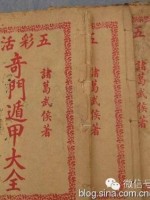 五彩活
諸葛武侯著
奇門遁甲大全
五
諸葛武侯著
微信号
blog.sina.com.cn